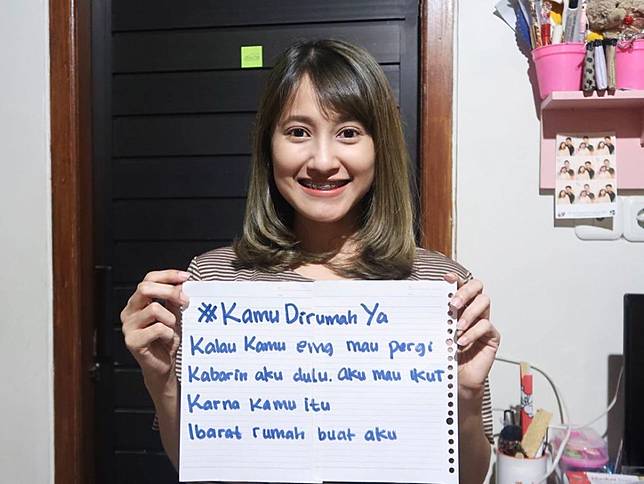 #Kamu Dirumah Ya
Kalau Kamu eing mau pergi
Kabarin aku dulu. aku mau ikut
Karna kamu itu
Ibarat rumah buat aku